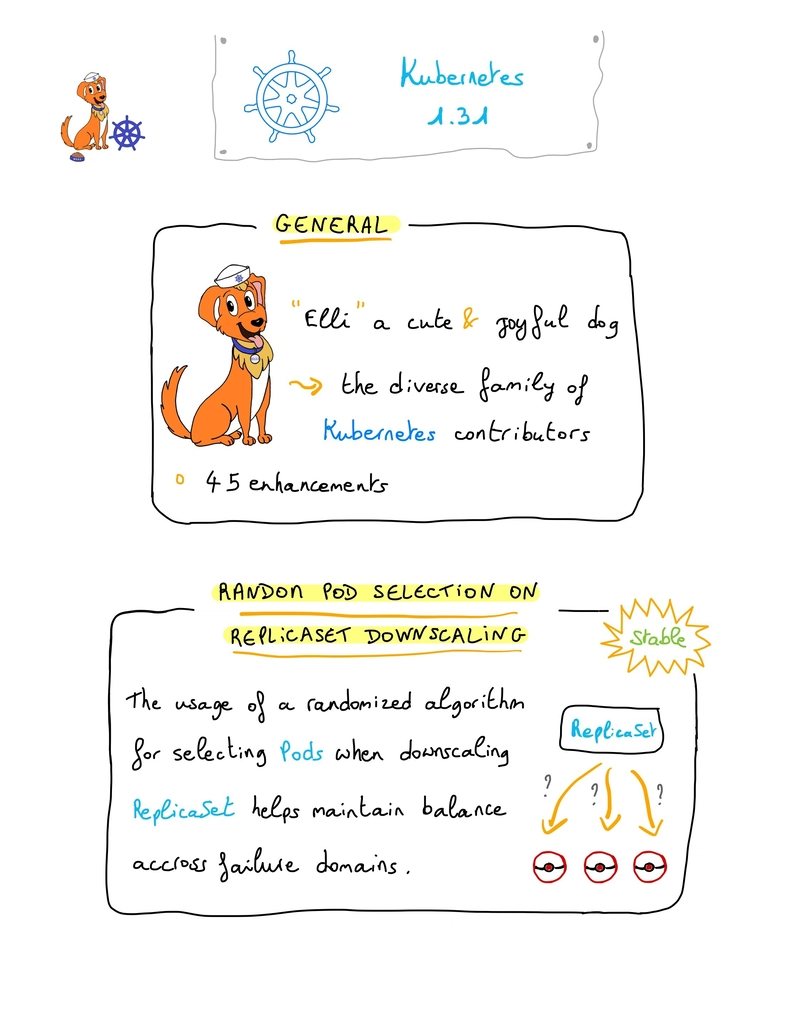 Kubernetes
1.31
GENERAL
"Elli" a cute & joyful dog
→ the diverse family of
Kubernetes contributors
45 enhancements
RANDOM POD SELECTION ON
REPLICASET DOWNSCALING
Stable
The usage of a randomized algorithm
for selecting Pods when downscaling
ReplicaSet helps maintain balance
accross failure domains.
ReplicaSet
? ? ?